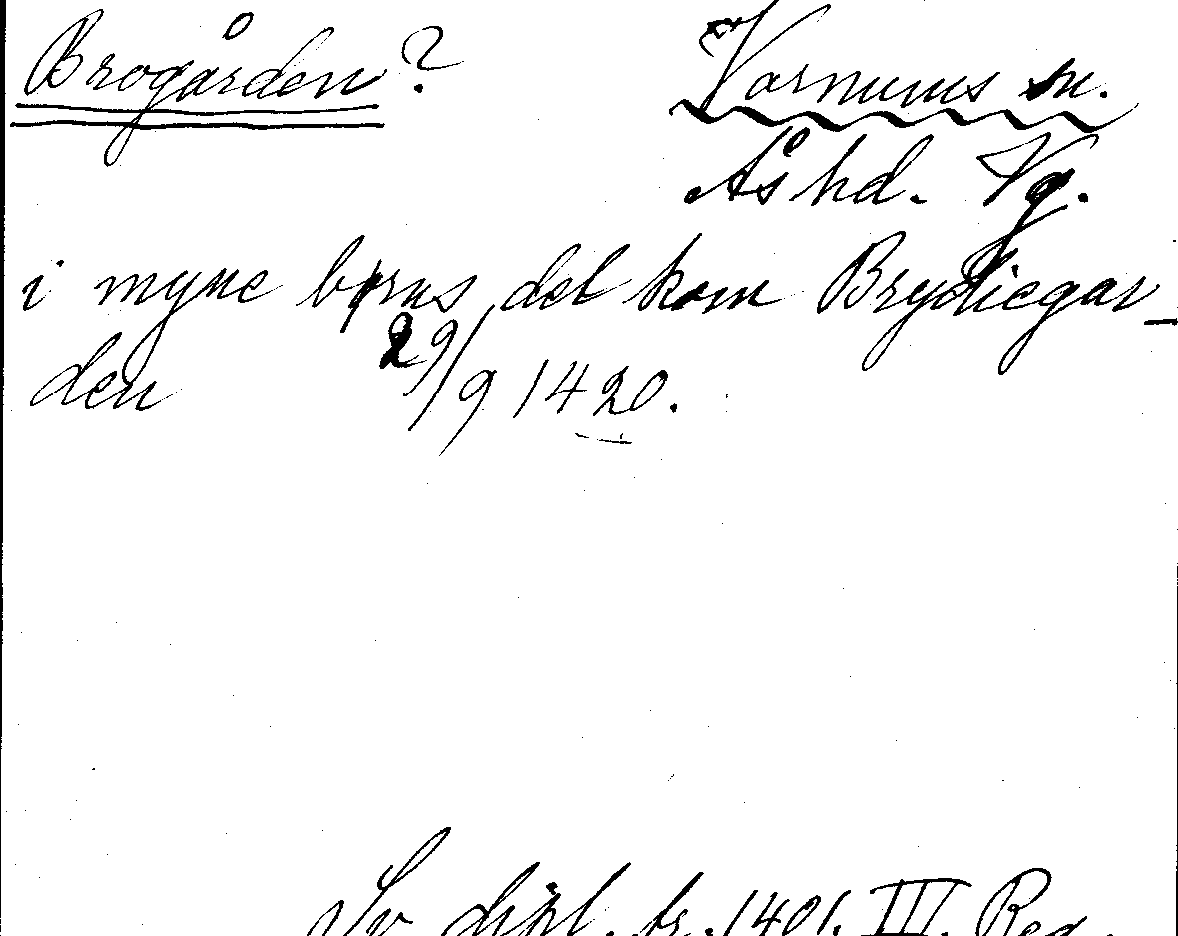 Brogården?
Varnums sn.
Ås hd. Vg.
i myne børns del kom Brydiegar-
den 29/9 1420.
Sv dipl. fr. 1401. III. Reg.